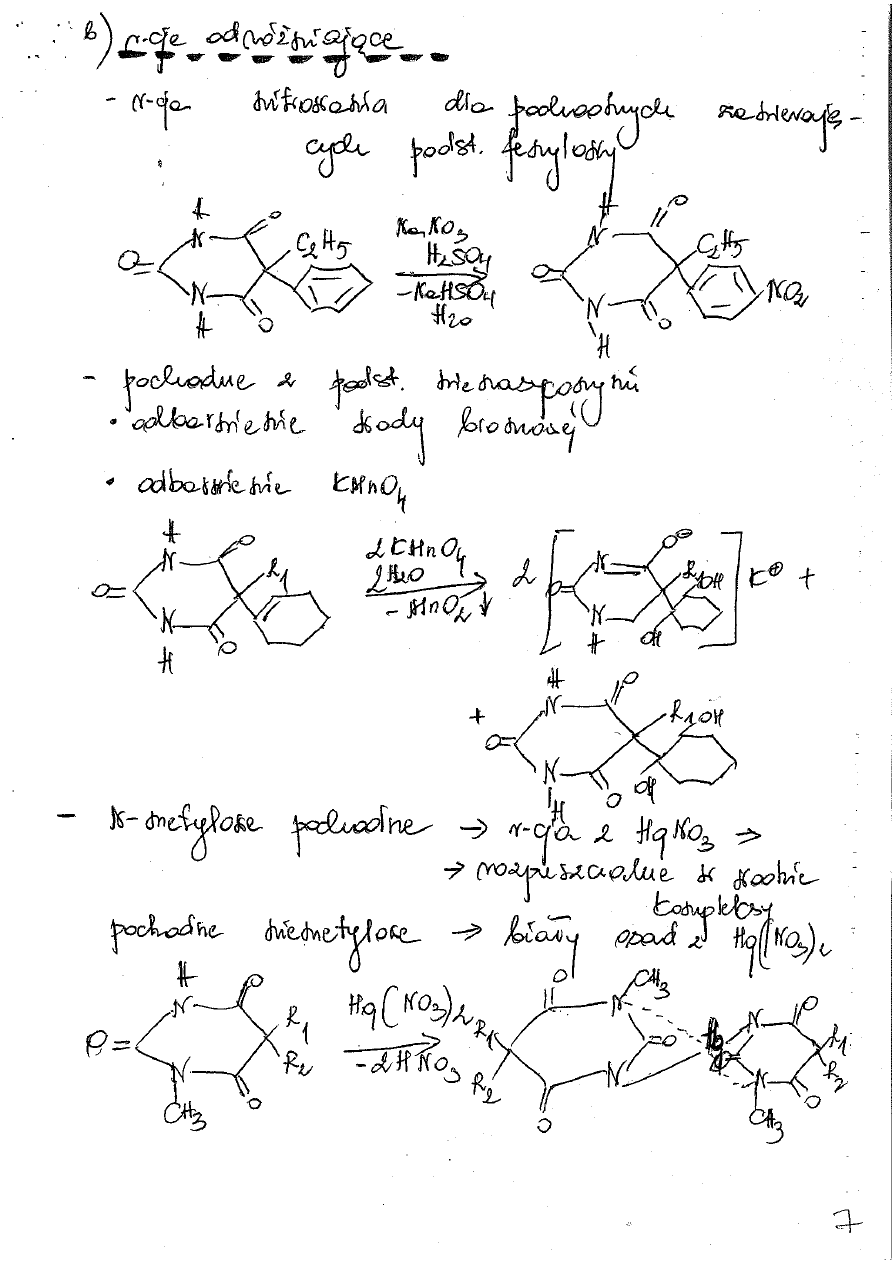 b) r-cje odróżniające
- r-cja nitrowania dla pochodnych zawierają-
cych podst. fenylowy
H
N
O=
O
C2H5
N
H
O
NaNO3
H2SO4
-NaHSO4
H2O
H
N
O
O=
C2H5
N
H
O
NO2
- pochodne z podst. nienasyconymi
• odbarwienie wody bromowej
• odbarwienie KMnO4
H
N
O
O=
R1
N
H
O
2KMnO4
2H2O
- MnO2 ↓
2 [
N
O⊖
O=
R1
OH
N
H
OH
] K⊕ +
+
H
N
O
O=
R1
OH
N
H
O
OH
- N-metylowe pochodne → r-cja z HgNO3 →
→ rozpuszczalne w wodzie
kompleksy
pochodne niemetylowe → biały osad z Hg(NO3)2
H
N
O
O=
R1
R2
N
CH3
O
Hg(NO3)2
-2HNO3
O
N
CH3
R1
R2
=O
N
O
N
O
R1
R2
N
CH3
O
7